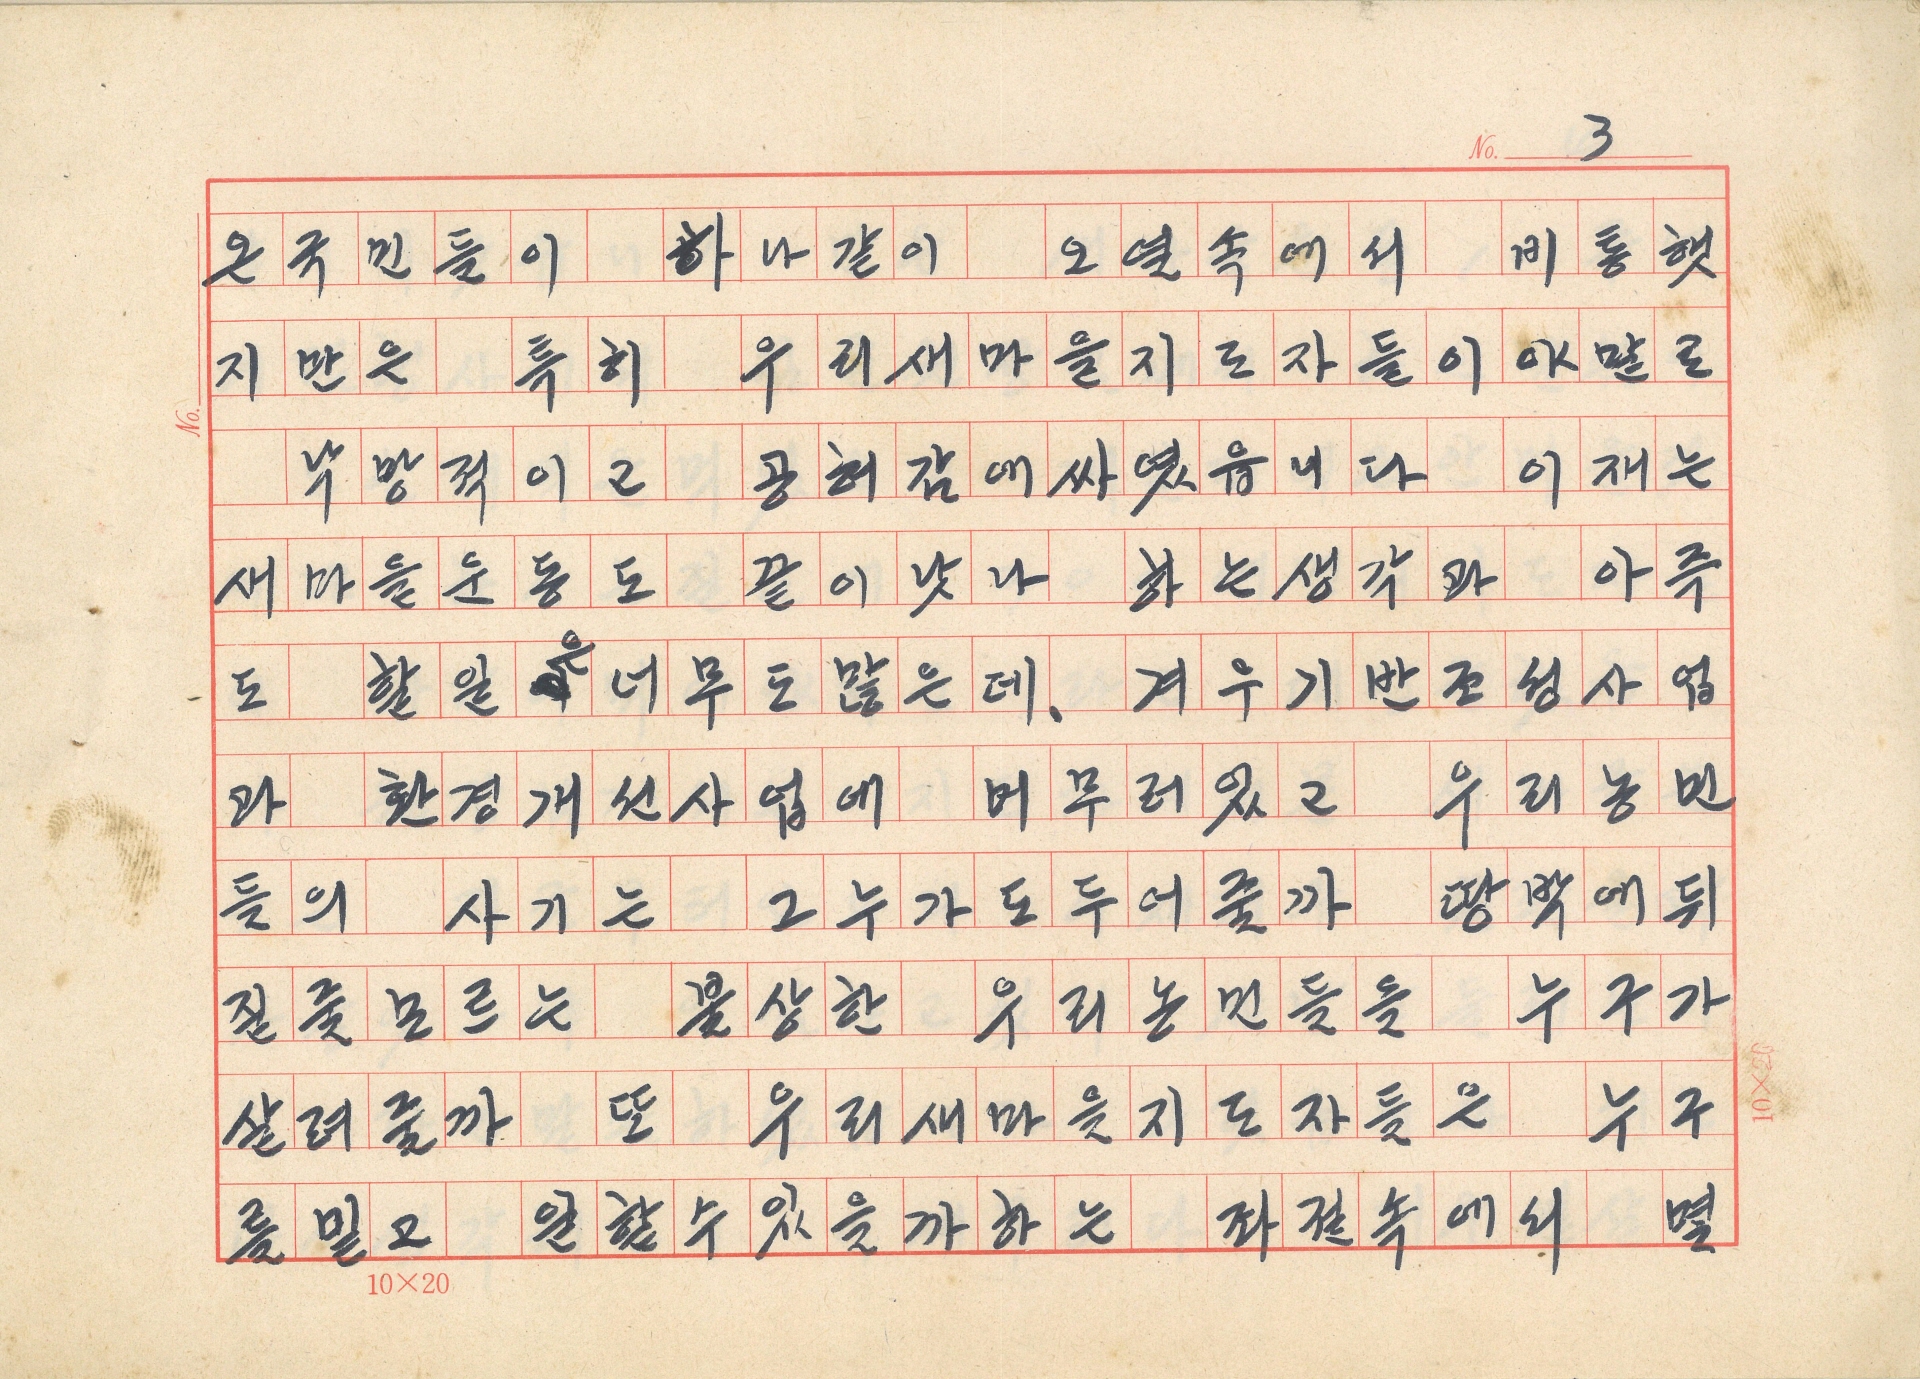 No. 3
온국민들이 하나같이 오열속에서 비통햇
지만은 특히 우리새마을지도자들이야말로
낙망적이고 공허감에싸였읍니다 이재는
새마을운동도 끝이낫나 하는생각과 아주
도 할일은너무도많은데. 겨우기반조성사업
과 환경개선사업에 버무러있고 우리농민
들의 사기는 그누가도두어줄까 땅박에뒤
질줄모르는 불상한 우리농민들을 누구가
살려줄까 또 우리새마을지도자들은 누구
를밑고 일할수있을까하는 좌절속에서 멸
No.
10×20
10×20